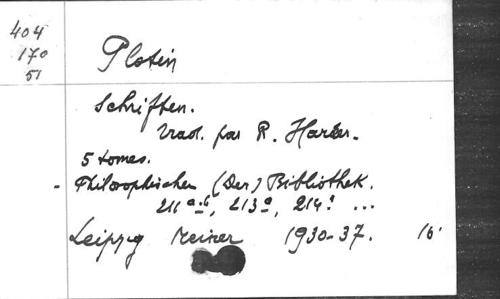 404
170
51
Plotin
Schriften.
Trad. par R. Harder.
5 tomes.
- Philosophischen (Der) Bibliothek.
211 a-b, 213a, 214a ...
Leipzig Meiner 1930-37. 16°